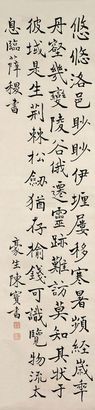 悠悠洛邑眇眇伊瀍移寒暑頻經歲
丹壑幾變陵谷俄遷靈跡難訪莫知其狀
彼域是生荊棘松劒猶存榆錢可識覽物流太
息臨薛稷書
豪生陳寶書